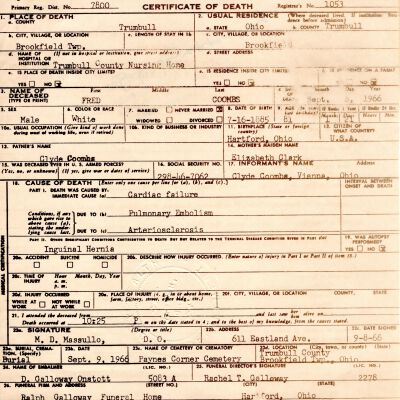 Primary Reg. Dist. No. 7800 CERTIFICATE OF DEATH Registrar's No. 1053
1. PLACE OF DEATH 2. USUAL RESIDENCE (Where deceased lived. If institution:
a. COUNTY Trumbull a. STATE Ohio b. COUNTY Trumbull
b. CITY, VILLAGE, OR LOCATION c. LENGTH OF STAY IN 1b c. CITY, VILLAGE, OR LOCATION
Brookfield Twp. Brookfield
d. NAME OF HOSPITAL OR INSTITUTION (If not in hospital or institution, give street address) d. STREET ADDRESS
Trumbull County Nursing Home
e. IS PLACE OF DEATH INSIDE CITY LIMITS? e. IS RESIDENCE INSIDE CITY LIMITS?
YES NO YES NO
3. NAME OF DECEASED (TYPE OR PRINT) First Middle Last
FRED COOMBS Sept. 1966
5. SEX 6. COLOR OR RACE 7. MARRIED NEVER MARRIED 8. DATE OF BIRTH
Male White WIDOWED DIVORCED 7-16-1885 81
10a. USUAL OCCUPATION (Give kind of work done during most of working life, even if retired) 10b. KIND OF BUSINESS OR INDUSTRY 11. BIRTHPLACE (State or foreign country) 12. CITIZEN OF WHAT COUNTRY?
Hartford, Ohio U.S.A.
13. FATHER'S NAME 14. MOTHER'S MAIDEN NAME
Clyde Coombs Elizabeth Clark
15. WAS DECEASED EVER IN U. S. ARMED FORCES? 16. SOCIAL SECURITY NO. 17. INFORMANT'S NAME Address
(Yes, no, or unknown) (If yes, give war or dates of service) 298-46-7062 Clyde Coombs, Vienna, Ohio
18. CAUSE OF DEATH (Enter only one cause per line for (a), (b), and (c).) INTERVAL BETWEEN ONSET AND DEATH
PART I. DEATH WAS CAUSED BY:
IMMEDIATE CAUSE (a) Cardiac failure
Conditions, if any, which gave rise to above cause (a), stating the underlying cause last.
DUE TO (b) Pulmonary Embolism
DUE TO (c) Arteriosclerosis
PART II. OTHER SIGNIFICANT CONDITIONS CONTRIBUTING TO DEATH BUT NOT RELATED TO THE TERMINAL DISEASE CONDITION GIVEN IN PART I(a) 19. WAS AUTOPSY PERFORMED?
Inguinal Hernia YES NO
20a. ACCIDENT SUICIDE HOMICIDE 20b. DESCRIBE HOW INJURY OCCURRED. (Enter nature of injury in Part I or Part II of item 18.)
20c. TIME OF INJURY Hour Month, Day, Year
a. m.
p. m.
20d. INJURY OCCURRED 20e. PLACE OF INJURY (e. g., in or about home, farm, factory, street, office bldg., etc.) 20f. CITY, VILLAGE, OR LOCATION COUNTY STATE
WHILE AT WORK NOT WHILE AT WORK
21. I attended the deceased from to and last saw alive on
Death occurred at 10:25 P m. on the date stated above; and to the best of my knowledge, from the causes stated.
22a. SIGNATURE (Degree or title) 22b. ADDRESS 22c. DATE SIGNED
M. D. Massullo, D. O. 611 Eastland Ave. 9-8-66
23a. BURIAL, CREMATION, (Specify) 23b. DATE 23c. NAME OF CEMETERY OR CREMATORY 23d. LOCATION (City, town, or county) (State)
Burial Sept. 9, 1966 Paynes Corner Cemetery Trumbull County Brookfield Twp., Ohio
24. NAME OF EMBALMER 25. FUNERAL DIRECTOR'S SIGNATURE (LICENSE NO.)
D. Galloway Onstott 5083 A Rachel T. Galloway 2278
26. FUNERAL FIRM AND ADDRESS (STREET NO.) (CITY) (STATE)
Ralph Galloway Funeral Home Hartford, Ohio